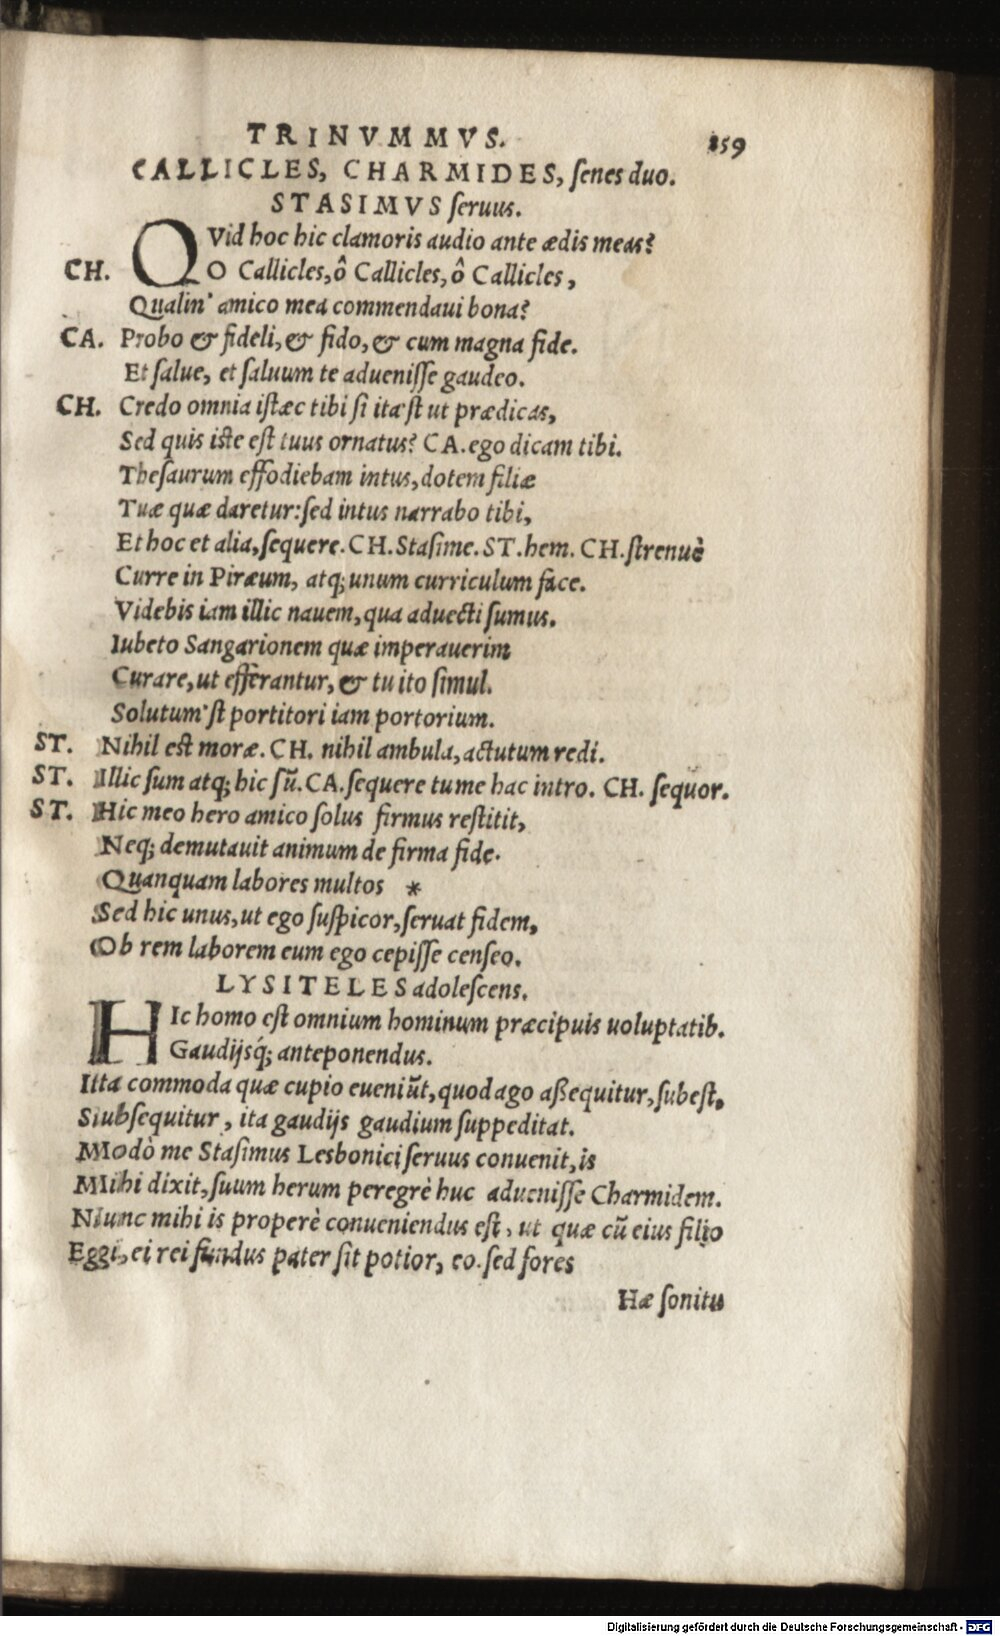 TRINVMMVS. 159
CALLICLES, CHARMIDES, ſenes duo.
STASIMVS ſeruus.
QVid hoc hic clamoris audio ante ædis meas?
CH. O Callicles, ô Callicles, ô Callicles,
Qualin' amico mea commendaui bona?
CA. Probo & fideli, & fido, & cum magna fide.
Et ſalue, et ſaluum te adueniſſe gaudeo.
CH. Credo omnia iſtæc tibi ſi ita'ſt ut prædicas,
Sed quis iſte eſt tuus ornatus? CA. ego dicam tibi.
Theſaurum effodiebam intus, dotem filiæ
Tuæ quæ daretur: ſed intus narrabo tibi,
Et hoc et alia, ſequere. CH. Staſime. ST. hem. CH. ſtrenuè
Curre in Piræum, atq; unum curriculum face.
Videbis iam illic nauem, qua aduecti ſumus.
Iubeto Sangarionem quæ imperauerim
Curare, ut efferantur, & tu ito ſimul.
Solutum'ſt portitori iam portorium.
ST. Nihil eſt moræ. CH. nihil ambula, actutum redi.
ST. Illic ſum atq; hic ſū. CA. ſequere tu me hac intro. CH. ſequor.
ST. Hic meo hero amico ſolus firmus reſtitit,
Neq; demutauit animum de firma fide.
Quanquam labores multos *
Sed hic unus, ut ego ſuſpicor, ſeruat fidem,
Ob rem laborem eum ego cepiſſe cenſeo.
LYSITELES adoleſcens.
HIc homo eſt omnium hominum præcipuis uoluptatib.
Gaudijsq́; anteponendus.
Ita commoda quæ cupio eueniūt, quod ago aßequitur, ſubeſt,
Subſequitur, ita gaudijs gaudium ſuppeditat.
Modò me Staſimus Lesbonici ſeruus conuenit, is
Mihi dixit, ſuum herum peregrè huc adueniſſe Charmidem.
Nunc mihi is properè conueniendus eſt, ut quæ cū eius filio
Egi, ei rei fundus pater ſit potior, eo. ſed fores
Hæ ſonitu
Digitalisierung gefördert durch die Deutsche Forschungsgemeinschaft - DFG